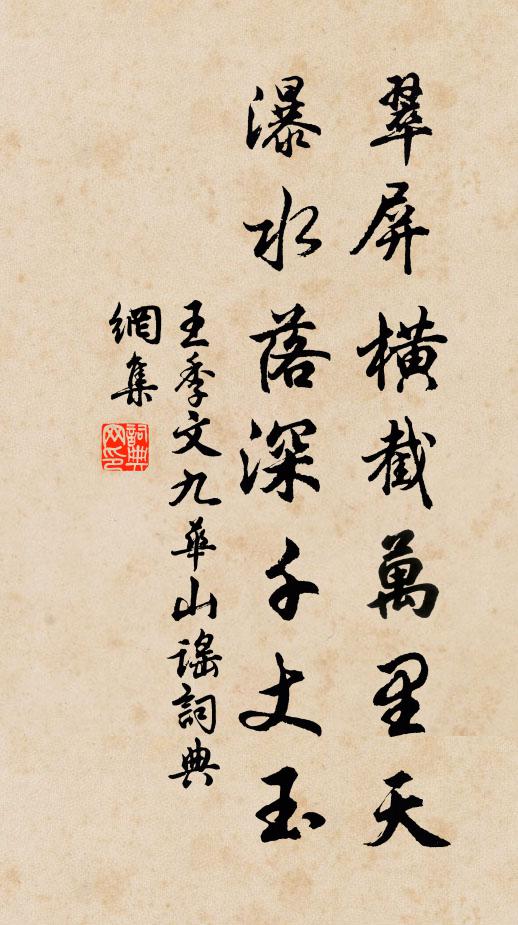 翠屏橫截萬里天
瀑水落深千丈玉
王季文九華山謠詞典
網集
詞典網印